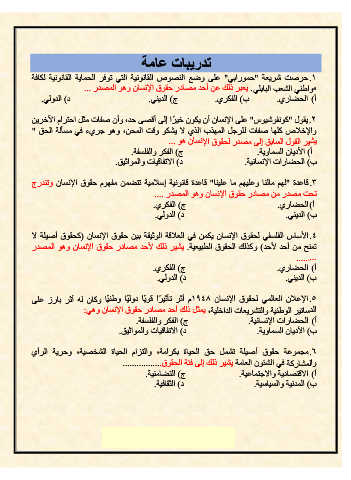 تدريبات عامة
١.حرصت شريعة "حمورابي" على وضع النصوص القانونية التي توفر الحماية القانونية لكافة
مواطني الشعب البابلي. يعبر ذلك عن أحد مصادر حقوق الإنسان وهو المصدر ...
أ) الحضاري. ب) الفكري. ج) الديني. د) الدولي.
٢.يقول "كونفوشيوس" على الإنسان أن يكون خيرًا إلى أقصى حد، وأن صفات مثل احترام الآخرين
والإخلاص كلها صفات للرجل المهذب الذي لا يشكو وقت المحن، وهو جريء في مسألة الحق "
يشير القول السابق إلى مصدر لحقوق الإنسان هو ...
أ) الأديان السماوية. ج) الفكر والفلسفة.
ب) الحضارات الإنسانية. د) الاتفاقيات والمواثيق.
٣.قاعدة "لهم مالنا وعليهم ما علينا" قاعدة قانونية إسلامية تتضمن مفهوم حقوق الإنسان وتندرج
تحت مصدر من مصادر حقوق الإنسان وهو المصدر ....
أ)الحضاري. ج) الفكري.
ب) الديني. د) الدولي.
٤.الأساس الفلسفي لحقوق الإنسان يكمن في العلاقة الوثيقة بين حقوق الإنسان (كحقوق أصيلة لا
تمنح من أحد لأحد) وكذلك الحقوق الطبيعية. يشير ذلك لأحد مصادر حقوق الإنسان وهو المصدر
........
أ) الحضاري. ج) الفكري.
ب) الديني. د) الدولي.
٥.الإعلان العالمي لحقوق الإنسان ١٩٤٨م أثر تأثيرًا قويًا دوليًا وطنيًا وكان له أثر بارز على
الدساتير الوطنية والتشريعات الداخلية، يمثل ذلك أحد مصادر حقوق الإنسان وهي:
أ) الحضارات الإنسانية. ج) الفكر والفلسفة.
ب) الأديان السماوية. د) الاتفاقيات والمواثيق.
٦.مجموعة حقوق أصيلة تشمل حق الحياة بكرامة، والتزام الحياة الشخصية، وحرية الرأي
والمشاركة في الشئون العامة يشير ذلك إلى فئة الحقوق.................
أ) الاقتصادية والاجتماعية. ج) التضامنية.
ب) المدنية والسياسية. د) الثقافية.